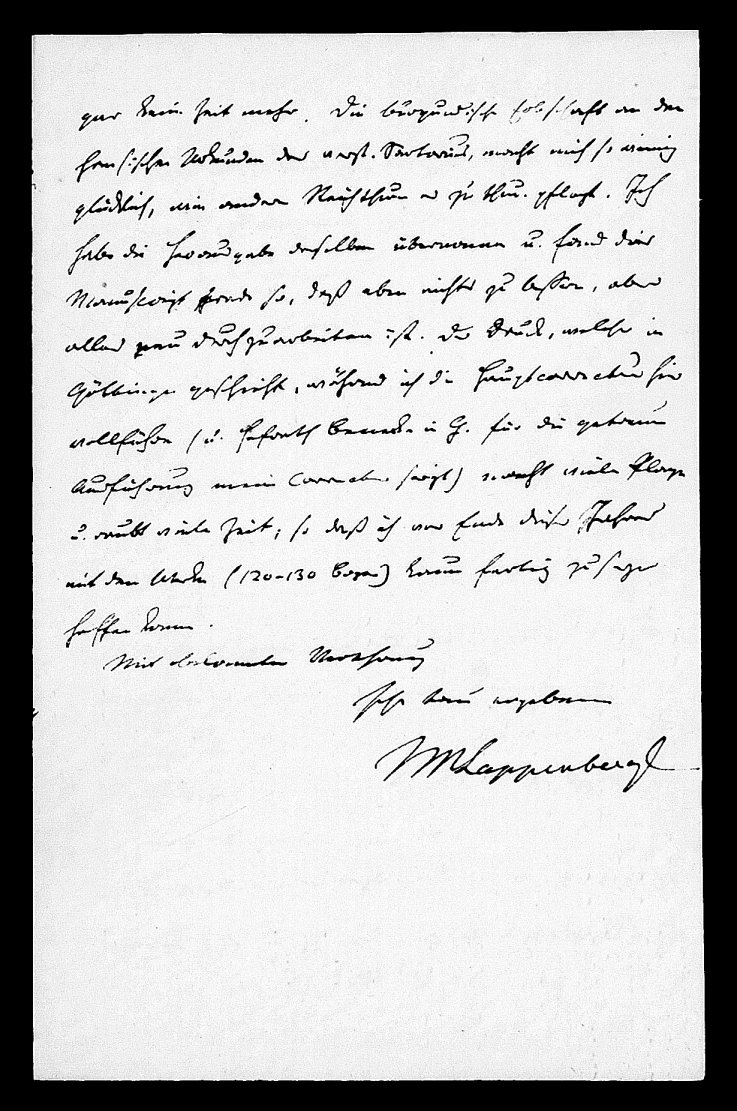 gar kein Zeit mehr. Die burgundische Erbschaft an den
hansischen Urkunden des verst. Sartorius, macht mich so wenig
glücklich, wie andern Reichthum es zu thun pflegt. Ich
habe die Herausgabe derselben übernommen u. fand das
Manuscript so, daß eben nichts zu bessern, aber
alles neu durchzuarbeiten ist. Der Druck, welcher in
Göttingen geschieht, während ich die Hauptcorrectur hier
vollführe (u. Hofrath Benecke in G. für die getreue
Ausführung meiner Correctur sorgt) macht viele Plage
u. raubt viele Zeit; so daß ich vor Ende dieses Jahres
mit dem Werke (120-130 Bogen) kaum fertig zu seyn
hoffen kann.
Mit bekannter Verehrung
Ihr treu ergebener
JMLappenberg